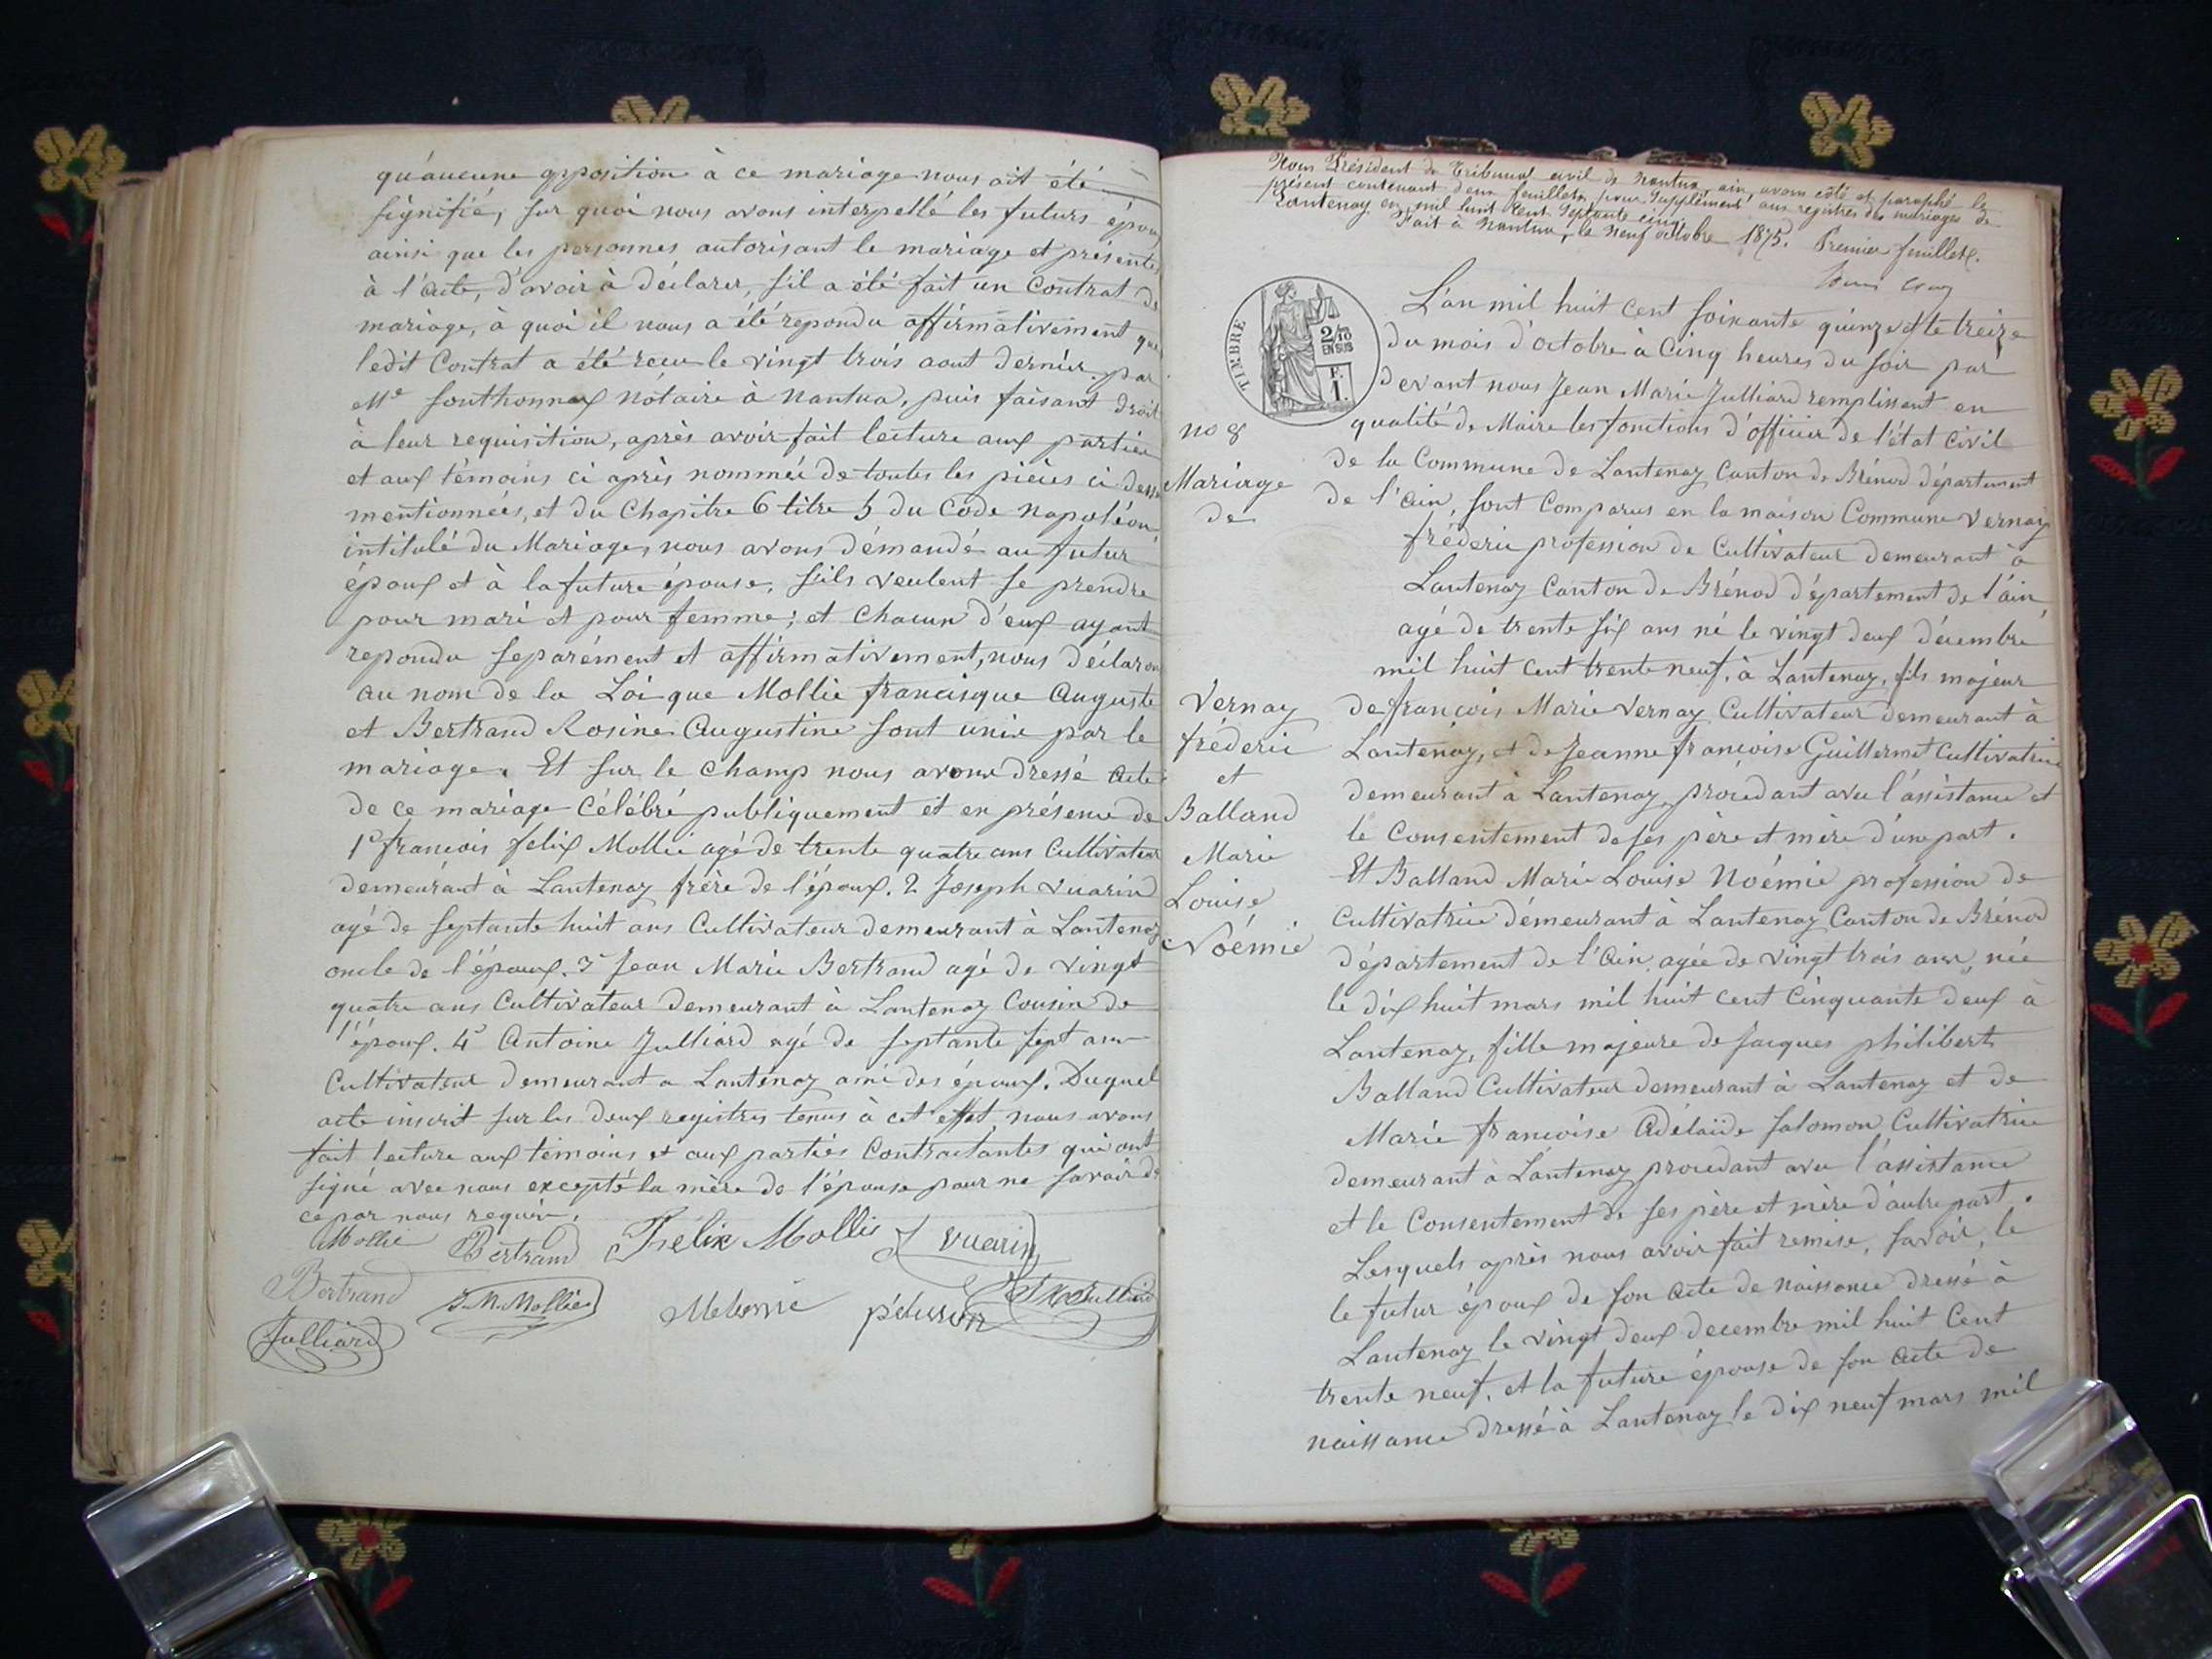 qu'aucune opposition à ce mariage nous ait été
signifié, sur quoi nous avons interpellé les futurs époux
ainsi que les personnes autorisant le mariage et présentes
à l'acte, d'avoir à déclarer, s'il a été fait un contrat de
mariage, à quoi il nous a été repondu affirmativement que
ledit Contrat a été recu le vingt trois aout dernier par
Me Southonnax nótaire à Nantua, puis faisant droit
à leur requisition, après avoir fait lecture aux parties
et aux témoins ci après nommés de toutes les pièces ci dessus
mentionnées, et du Chapitre 6 titre 5 du Code Napoléon
intitulé du Mariage, nous avons démandé au futur
époux et à la future épouse, s'ils veulent se prendre
pour mari et pour femme; et chacun d'eux ayant
repondu separément et affirmativement, nous déclarons
au nom de la Loi que Mollie francisque Auguste
et Bertrand Rosine Augustine sont unis par le
mariage. Et sur le champ nous avons dressé acte
de ce mariage célébré publiquement et en présence de
1° francois felix Mollie agé de trente quatre ans Cultivateur
demeurant à Lantenay frère de l'époux. 2 Joseph Vuarin
agé de septante huit ans Cultivateur demeurant à Lantenay
oncle de l'époux. 3° Jean Marie Bertrand agé de vingt
quatre ans Cultivateur demeurant à Lantenay Cousin de
l'époux. 4° Antoine Julliard agé de septante sept ans
Cultivateur demeurant a Lantenay ami des époux. Duquel
acte inscrit sur les deux registres tenus à cet effet, nous avons
fait lecture aux témoins et aux parties Contractantes qui ont
signé avec nous excepté la mère de l'épouse pour ne savoir de
ce par nous requis.
Mollie Bertrand Félix Mollie J Vuarin
Bertrand J. M. Mollie
Julliard
Nous Président du Tribunal civil de Nantua, ain, avons côté et paraphé le
présent contenant deux feuillets, pour Supplément aux registres des mariages de
Lantenay en mil huit cent septante cinq.
Fait à Nantua, le neuf octobre 1875. Premier feuillet.
TIMBRE
2/10
EN SUS
F.
1.
L'an mil huit cent soixante quinze et le treize
du mois d'octobre à Cinq heures du soir par
devant nous Jean Marie Julliard remplissent en
qualité de Maire les fonctions d'officier de l'état civil
de la Commune de Lantenay Canton de Brénod département
de l'ain, sont Comparus en la maison Commune Vernay
fréderic profession de Cultivateur demeurant à
Lantenay Canton de Brénod département de l'ain
agé de trente six ans né le vingt deux décembre
mil huit cent trente neuf, à Lantenay, fils majeur
de francois Marie Vernay Cultivateur demeurant à
Lantenay, et de Jeanne francoise Guillermet Cultivatrice
demeurant à Lantenay, procedant avec l'assistance et
le Consentement de ses père et mère d'une part.
Et Balland Marie Louise Noémie profession de
Cultivatrice démeurant à Lantenay Canton de Brénod
département de l'Ain, agée de vingt trois ans, née
le dix huit mars mil huit cent cinquante deux à
Lantenay, fille majeure de Jacques philibert
Balland Cultivateur demeurant à Lantenay et de
Marie francoise Adélaïde Salomon Cultivatrice
demeurant à Lantenay procedant avec l'assistance
et le Consentement de ses père et mère d'autre part.
Lesquels après nous avoir fait remise, savoir, le
le futur époux de son acte de naissance dressé à
Lantenay le vingt deux decembre mil huit Cent
trente neuf, et la future épouse de son acte de
naissance dressé à Lantenay le dix neuf mars mil
no 8
Mariage
de
Vernay
fréderic
et
Balland
Marie
Louise
Noémie